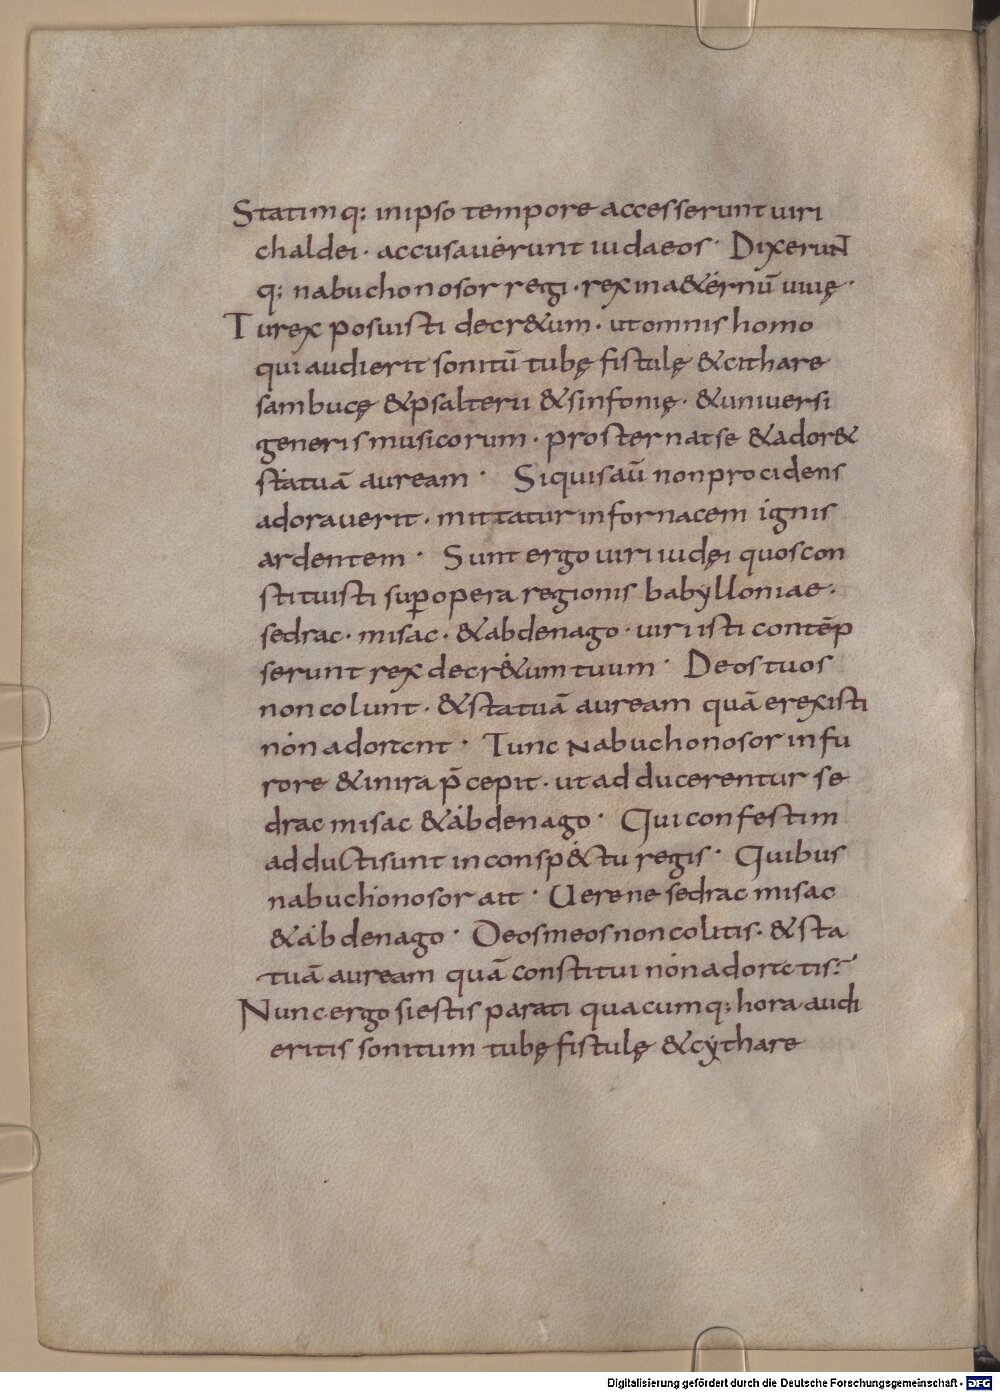 Statimq; in ipso tempore accesserunt uiri
chaldei · accusauerunt iudaeos · Dixerunt
q; nabuchonosor regi · rex in a&ernū uiuę ·
Tu rex posuisti decr&um · ut omnis homo
qui audierit sonitū tubę fistulę & cithare
sambucę & psalterii & sinfonię · & uniuersi
generis musicorum · prosternat se & ador&
statuā auream · Siquis aū non procidens
adorauerit · mittatur in fornacem ignis
ardentem · Sunt ergo uiri iudęi quos con
stituisti sup̄ opera regionis babylloniae ·
sedrac · misac · & abdenago · uiri isti contēp
serunt rex decr&um tuum · Deos tuos
non colunt · & statuā auream quā erexisti
non adorent · Tunc nabuchonosor in fu
rore & in ira p̄cepit · ut adducerentur se
drac misac & abdenago · Qui confestim
adducti sunt in consp&ctu regis · Quibus
nabuchonosor ait · Uerene sedrac misac
& abdenago · Deos meos non colitis · & sta
tuā auream quā constitui non adoretis?
Nunc ergo si estis parati quacumq; hora audi
eritis sonitum tubę fistulę & cythare
Digitalisierung gefördert durch die Deutsche Forschungsgemeinschaft - DFG